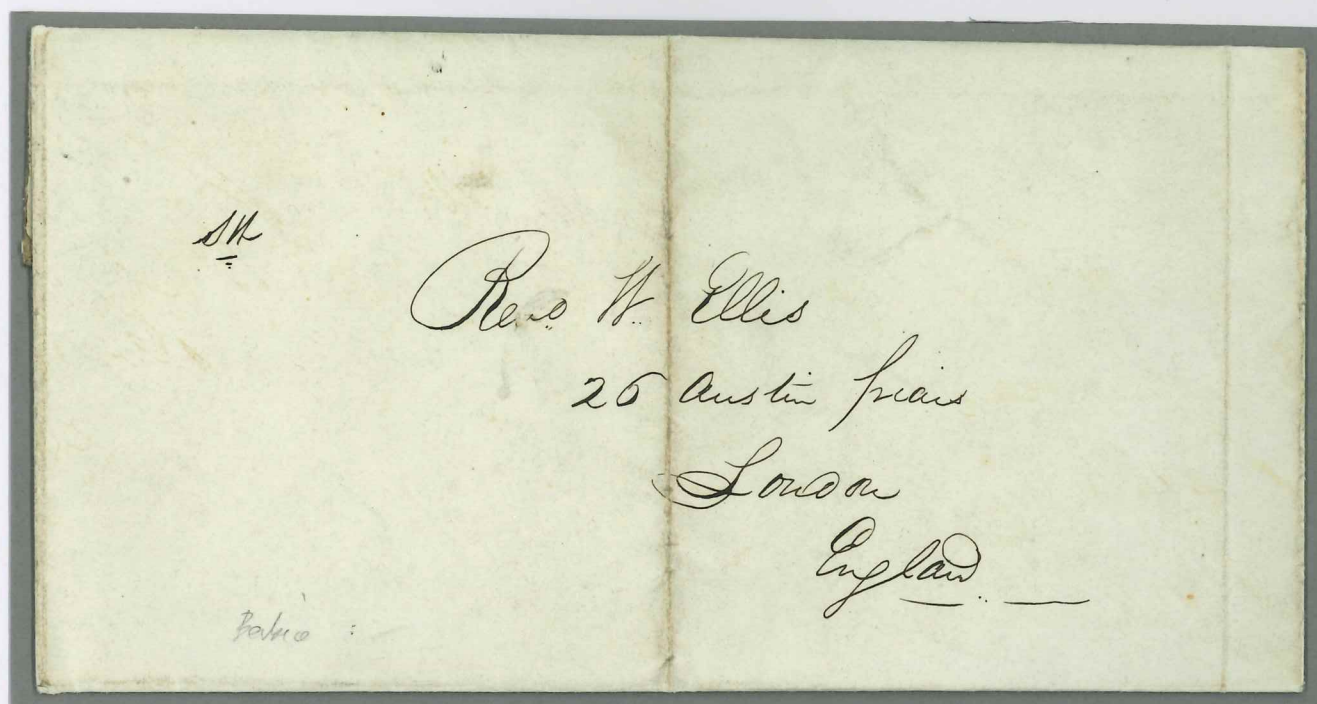 Revd W. Ellis
26 Austin friars
London
England